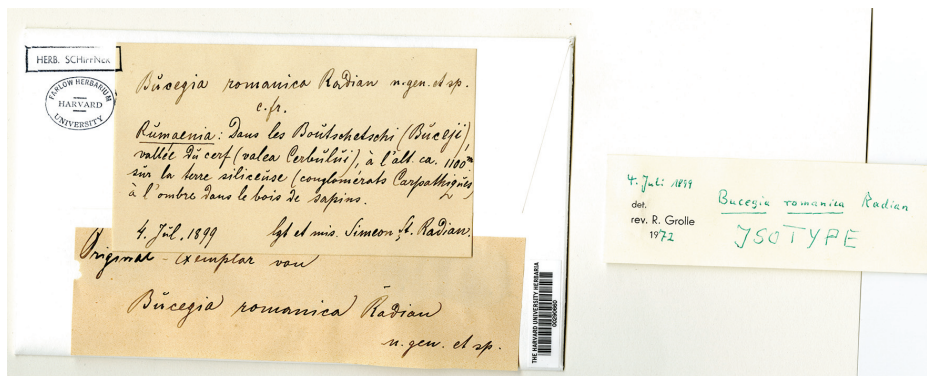 HERB. SCHIFFNER
FARLOW HERBARIUM
HARVARD
UNIVERSITY
Bucegia romanica Radian n. gen. et sp.
c. fr.
Rumaenia: Dans les Boutschetschi (Buceji),
vallée du cerf (valea Cerbului), à l'alt. ca. 1100 m
sur la terre siliceuse (conglomérats Carpathiques)
à l'ombre dans le bois de sapins.
4. Jul. 1899 lgt et mis. Simeon St. Radian.
Original-Exemplar von
Bucegia romanica Radian
n. gen. et sp.
THE HARVARD UNIVERSITY HERBARIA
00290860
4. Juli 1899
det.
rev. R. Grolle
1972
Bucegia romanica Radian
ISOTYPE